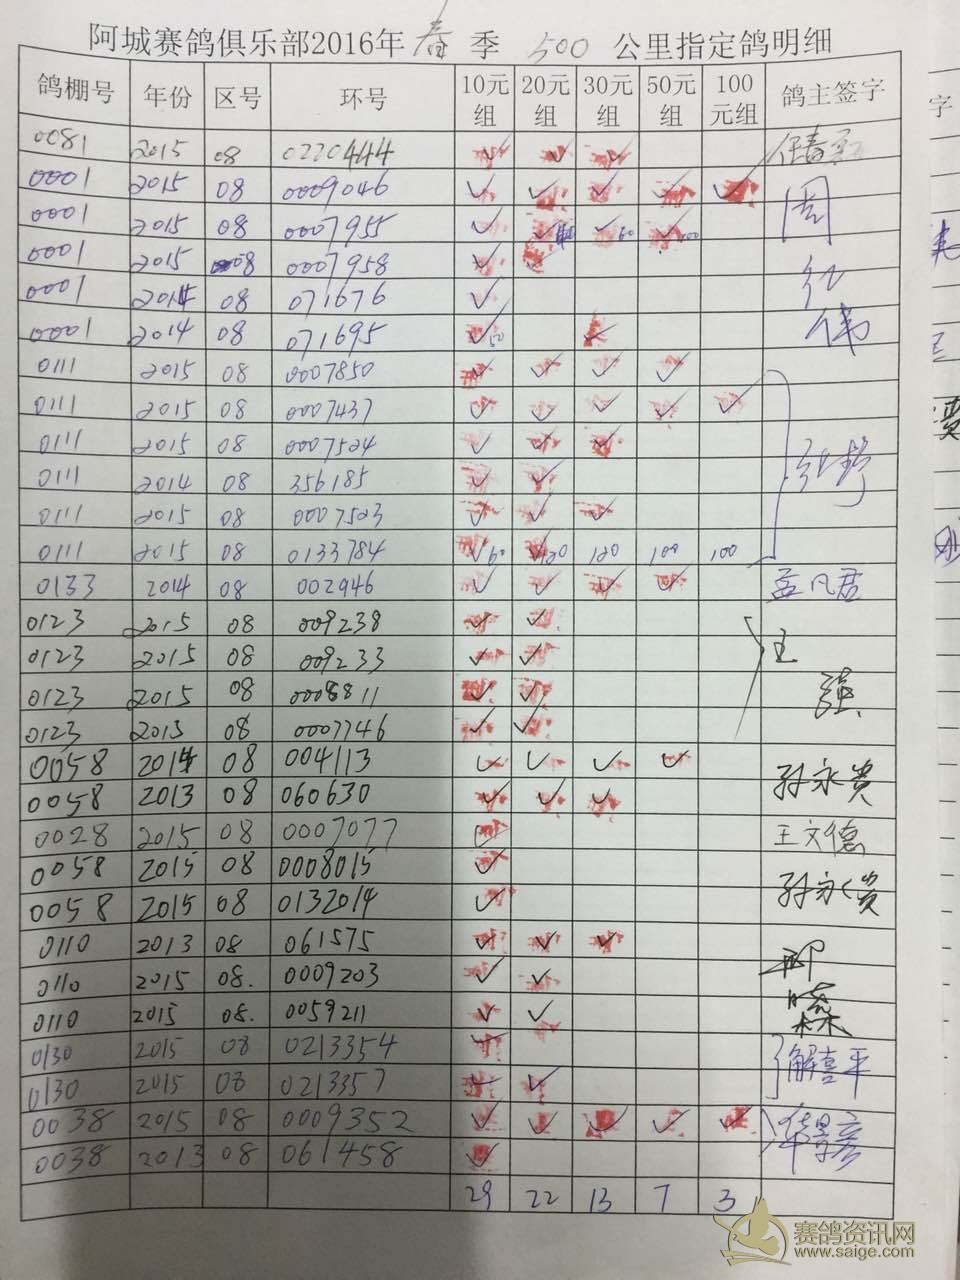 阿城赛鸽俱乐部2016年 春 季 500 公里指定鸽明细
鸽棚号 年份 区号 环号 10元组 20元组 30元组 50元组 100元组 鸽主签字
0081 2015 08 0220444 ✓ ✓ ✓
0001 2015 08 0009046 ✓ ✓ ✓ ✓ ✓ 周
0001 2015 08 0007955 ✓ ✓ ✓ 60 ✓ 100
0001 2015 08 0007958 ✓ ✓ 红
0001 2014 08 071676 ✓
0001 2014 08 071695 ✓ 50 ✓ 伟
0111 2015 08 0007850 ✓ ✓ ✓ ✓
0111 2015 08 0007437 ✓ ✓ ✓ ✓ ✓
0111 2015 08 0007524 ✓ ✓ ✓ 张野
0111 2014 08 356185 ✓ ✓
0111 2015 08 0007523 ✓ ✓ ✓
0111 2015 08 0133784 ✓ 60 ✓ 120 120 100 100
0133 2014 08 002946 ✓ ✓ ✓ ✓ 孟凡君
0123 2015 08 009238 ✓ ✓
0123 2015 08 009233 ✓ ✓ 王
0123 2015 08 0008811 ✓ ✓ 强
0123 2015 08 0007746 ✓ ✓
0058 2014 08 004113 ✓ ✓ ✓ ✓
0058 2013 08 060630 ✓ ✓ ✓ 孙永贵
0028 2015 08 0007077 ✓ 王文德
0058 2015 08 0008015 ✓
0058 2015 08 0132014 ✓ 孙永贵
0110 2013 08 061575 ✓ ✓ ✓
0110 2015 08. 0009203 ✓ ✓
0110 2015 08. 0059211 ✓ ✓
0130 2015 08 0213354 ✓ 解喜平
0130 2015 08 0213357 ✓ ✓
0038 2015 08 0009352 ✓ ✓ ✓ ✓ ✓
0038 2013 08 061458 ✓
29 22 13 7 3
赛鸽资讯网
www.saige.com